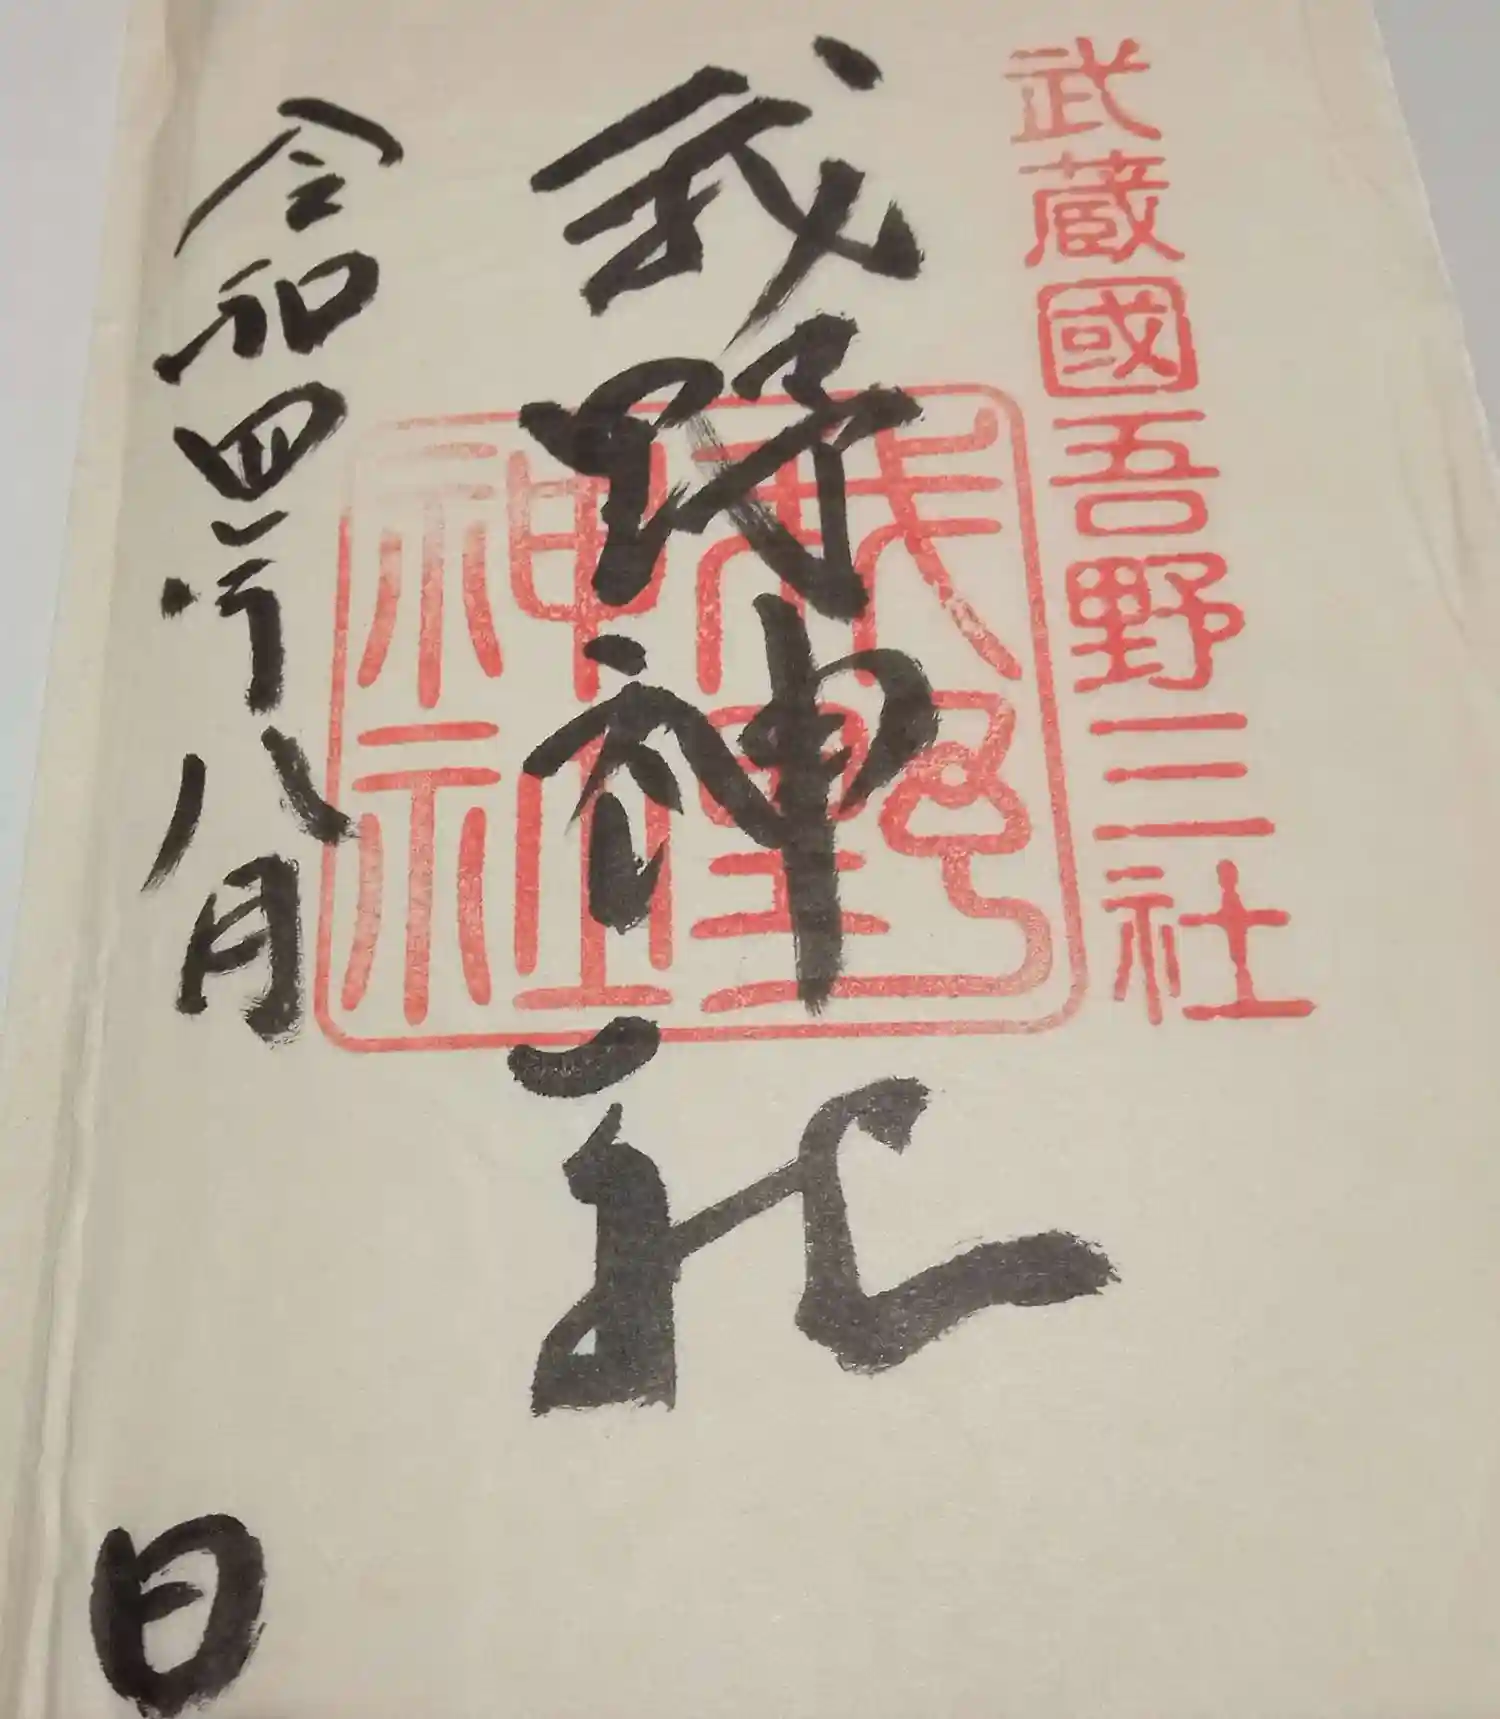 武蔵國吾野三社
我野神社
我野神社
令和四年八月 日